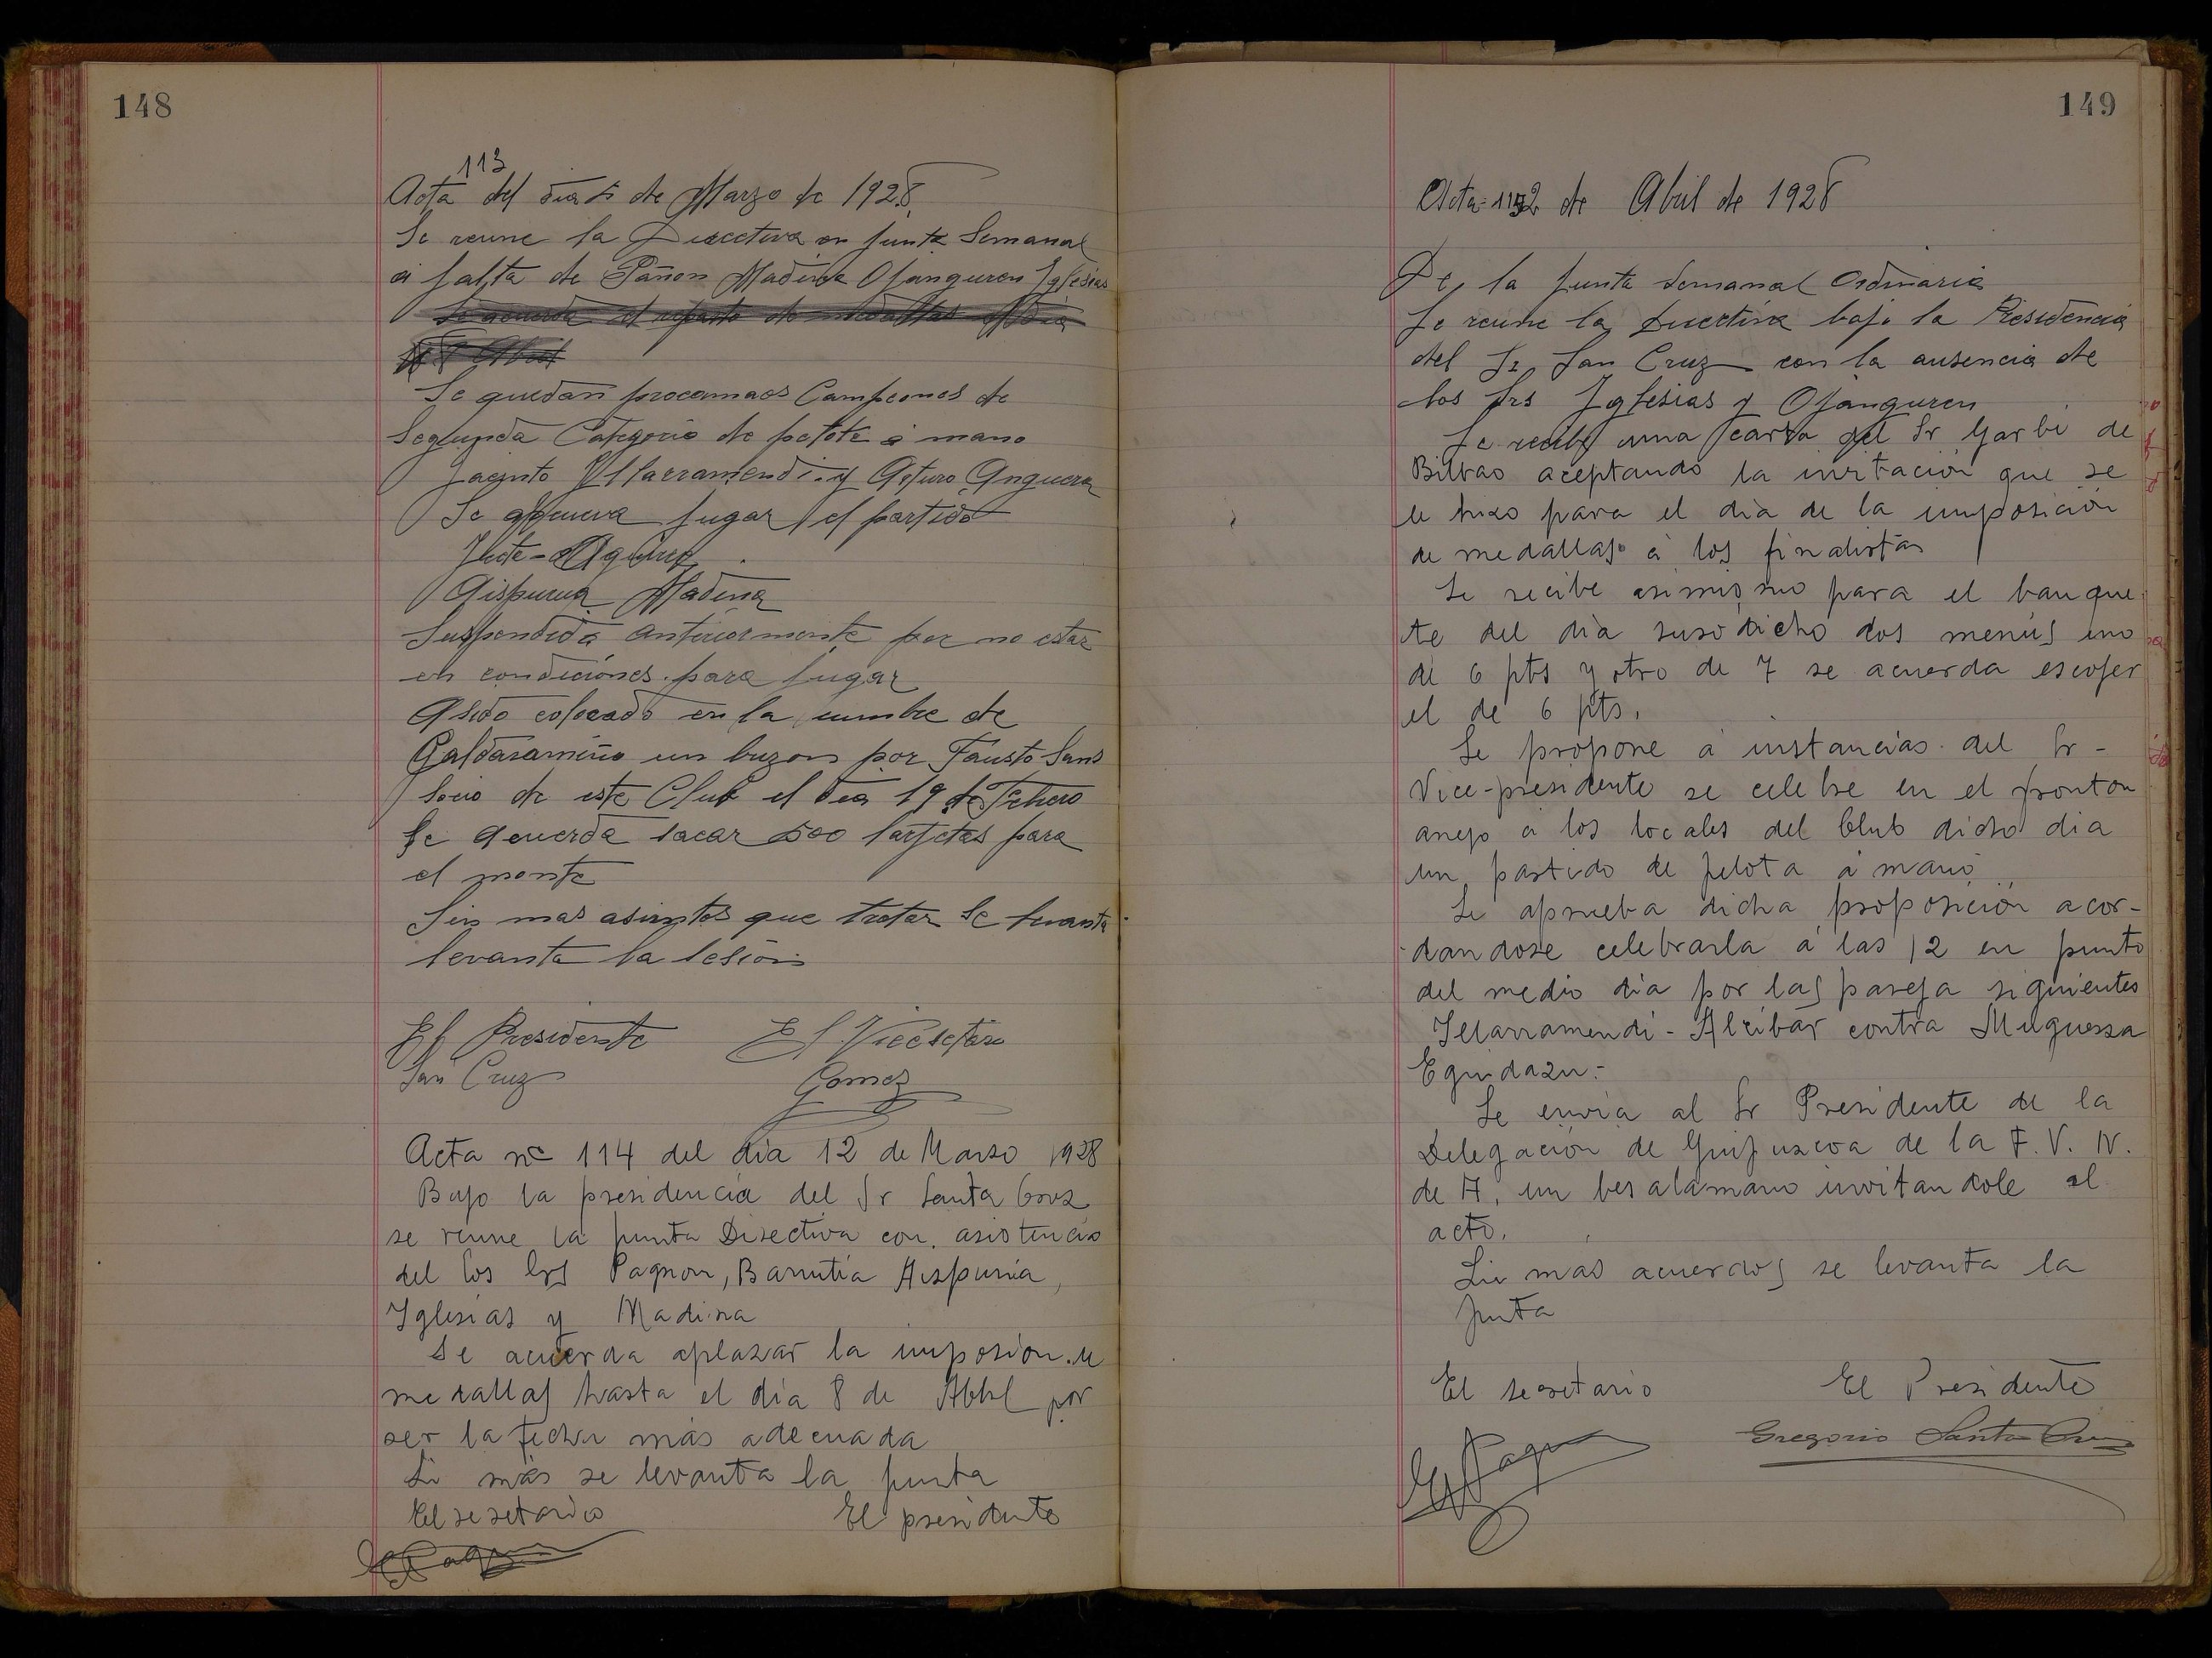 148
113
Acta del dia 5 de Marzo de 1928
Se reune la Directiva en junta Semanal
a falta de Pañon Madina Ojanguren Iglesias
Se acuerda el reparto de medallas el dia
Abril
Se quedan procamaos Campeones de
Segunda Categoria de pelota a mano
Jacinto Yllarramendi y Arturo Anguera
Se aprueva jugar el partido
Aispurua Madina
Suspendida anteriormente por no estar
en condiciones para jugar
A sido colocado en la cumbre de
Galdaramiño un buzon por Fausto Sans
Socio de este Club el dia 19 de Febrero
Se acuerda sacar 500 tarjetas para
el monte
Sin mas asuntos que tratar Se levanta
levanta la sesion
El Presidente El Vicesetario
San Cruz Gomez
Acta nº 114 del dia 12 de Marso 1928
Bajo la presidencia del Sr Santa Crus
se reune la junta Directiva con asistencia
del los Srs Pagnon, Barrutia Aispurua,
Iglesias y Madina
Se acuerda aplasar la imposion de
medallas hasta el dia 8 de Abril por
ser la fecha más adecuada
Si más se levanta la junta
El sesetario El presidente
149
Acta 115 2 de Abril de 1928
De la junta Semanal Ordinaria
Se reune la Directiva bajo la Presidencia
del Sr San Cruz con la ausencia de
los Srs Iglesias y Ojanguren
Se recibe una carta del Sr Garbi de
Bilbao aceptando la invitación que se
le hizo para el dia de la imposición
de medallas a los finalistas
Se recibe asimismo para el banque
te del dia susodicho dos menús uno
de 6 pts y otro de 7 se acuerda escojer
el de 6 pts.
Se propone a instancias del Sr -
Vice-presidente se celebre en el fronton
anejo a los locales del Club dicho dia
un partido de pelota a mano
Se aprueba dicha proposición acor-
dandose celebrarla a las 12 en punto
del medio dia por las pareja siguientes
Illarramendi - Alcibar contra Muguersa
Eguidazu.-
Se envia al Sr Presidente de la
Delegación de Guipuzcoa de la F. V. N.
de A, un besalamano invitandole al
acto.
Sin mas acuerdos se levanta la
junta
El secretario El Presidente
Gregorio Santa Cruz